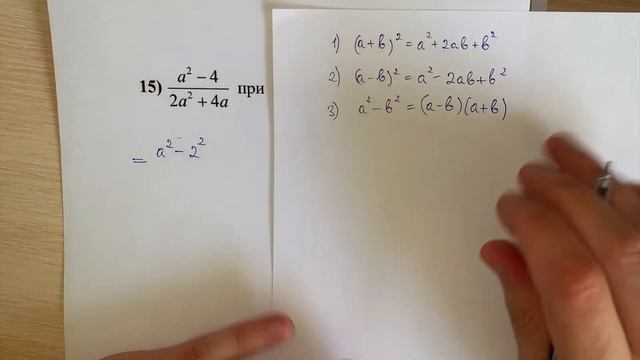 15) \frac{a² − 4}{2a² + 4a} при
= a² − 2²
1) (a+b)² = a² + 2ab + b²
2) (a-b)² = a² − 2ab + b²
3) a² − b² = (a-b)(a+b)